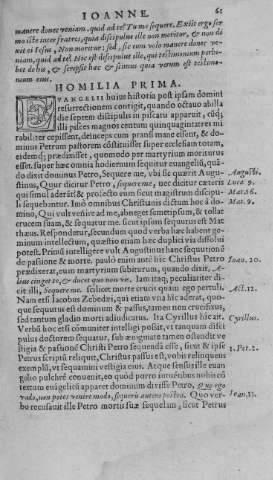 IOANNE. 61
manere donec veniam. quid ad te? Tu me sequere. Exiit ergo ser
mo iste inter fratres, quod discipulus ille non moritur, & non di
xit ei Iesus, Non moritur: sed, sic eum volo manere donec ve-
niam, quid ad te?. Hic est discipulus ille, qui testimonium perhi-
bet de his, & scripsit hæc & scimus quia verum est testimo-
nium eius.
HOMILIA PRIMA.
EVANGELII huius historia post ipsam domini
resurrectionem contigit, quando octauo ab illa
die septem discipulis in piscatu apparuit, cúq;
illi pisces magnos centum quinquagintatres mi
rabiliter cepissent, deinceps cum prandium eisset, & do-
minus Petrum pastorem cóstituisset super ecclesiam totam,
eidem dj prædixisset, quomodo per martyrium moriturus
esset. super hæc omnia hodiernum sequitur euangeliú, quá-
do dixit dominus Petro, Sequere me, vbi sic quærit Augu-
stinus, Quur dicitur Petro, sequere me, nec dicitur cæteris
qui simul aderát & profecto eum sicut magistrum discipu-
li sequebantur. Imò omnibus Christianis dictum hoc à do-
mino, Qui vult venire ad me, abneget semetipsum, & tollat
crucem suam, & sequatur me. sicut ipsum sequutus est Mat
thæus. Respondetur, secundum quod verba hæc habent ge-
minum intellectum, quæstio etiam hæc duplici via dissolui
potest. Primùm intelligere vult Augustinus hanc sequutionē
de passione & morte. paulò enim antè hic Christus Petro
prædixerat, eum martyrium subiturum, quando dixit, A-
lius cinget te, & ducet quo non vis. Iam itaq; peculiariter di-
cit illi, Sequere me. scilicet morte crucis quam ego pertuli.
Nam etsi Iacobus Zebedæi, qui etiam vna hîc aderat, quo-
que sequutus est dominum & passus, tamen non crucifixus,
sed tantum gladio morti adiudicatus. Ita Cyrillus hic ait.
Verbú hoc etsi cómuniter intelligi possit, vt tanquam disci
pulus doctorem sequatur, sub ænigmate tamen ostendit ve
stigia & passioné Christi Petro sequendá esse, sicut & ipse
Petrus scriptú reliquit, Christus passus est, vobis relinquens
exemplú, vt sequamini vestigia eius. Atque sensus ille euan
gelio pulchrè conuenit, eo quód porrò intuentibus nobis có
textum euágelicú apparet dominum dixisse Petro, Quo ego
vado, non potes venire modò, sequeris autem postea. Quo ver-
bo recusauit ille Petro mortis suæ sequelam, sicut Petrus
Augusti.
Luce 9.
Mat. 16.
Mat. 9.
Ioan. 20.
Act. 12.
Cyrillus.
1. Pet. 2.
Ioan. 13.